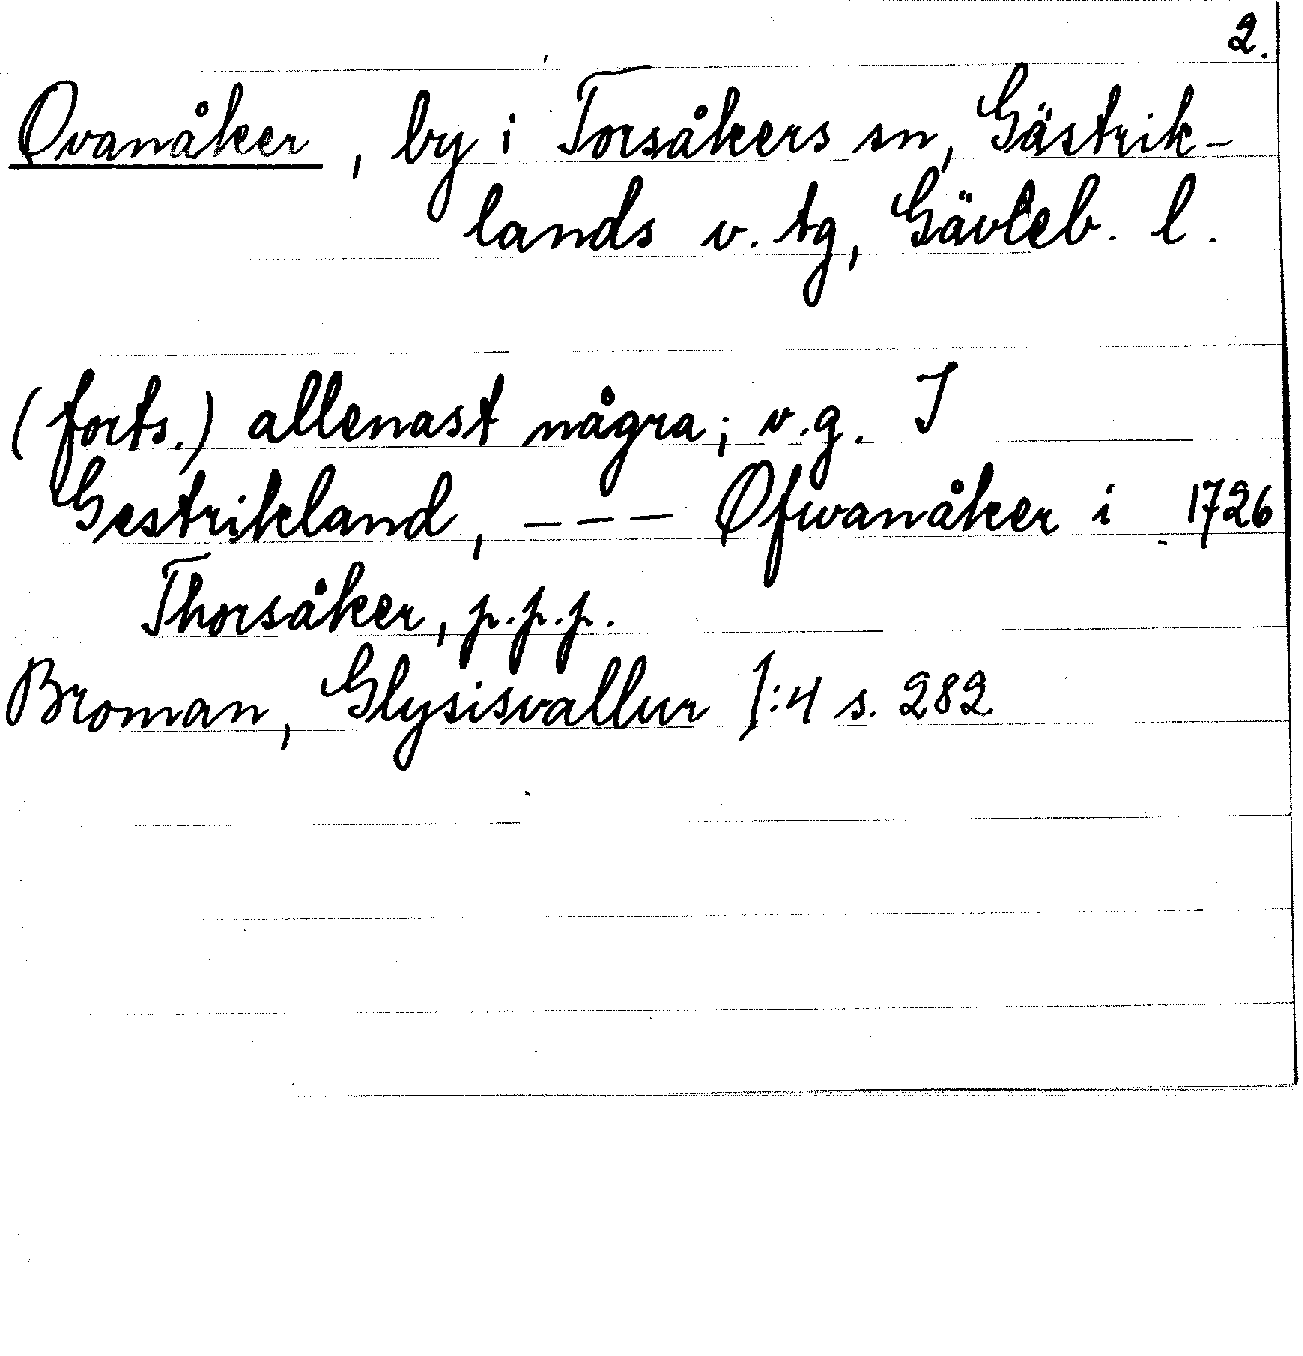 2.
Ovanåker, by i Torsåkers sn, Gästrik-
lands v. tg, Gävleb. l.
(forts.) allenast några; v.g. I
Gestrikland, --- Ofwanåker i 1726
Thorsåker, p.p.p.
Broman, Glysisvallur I:4 s. 282